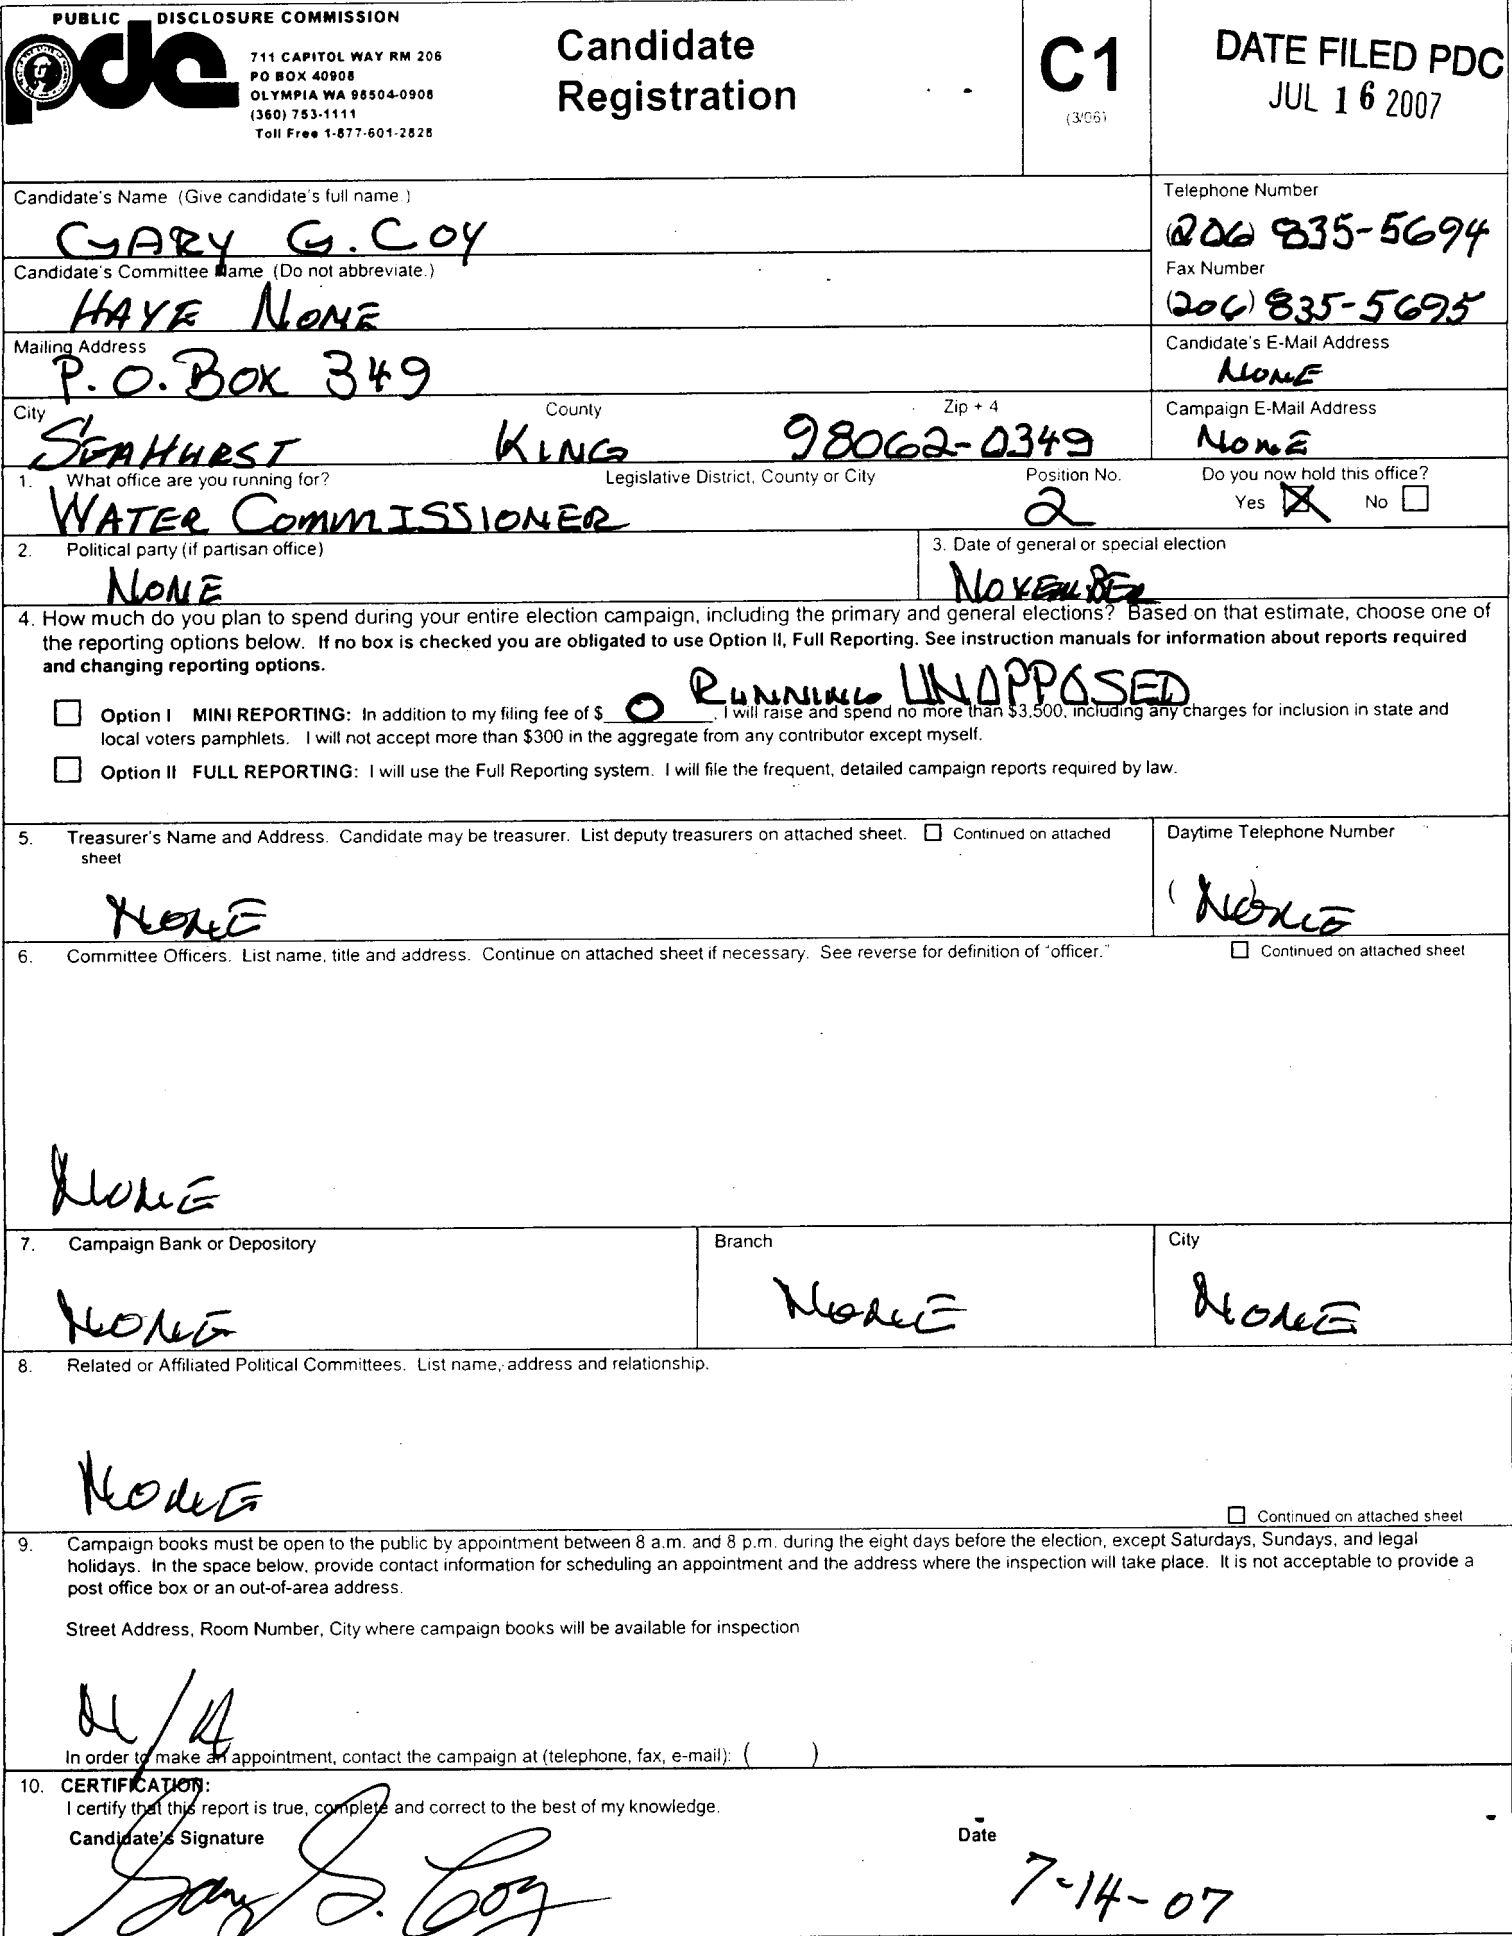 PUBLIC DISCLOSURE COMMISSION
pdc
711 CAPITOL WAY RM 206
PO BOX 40908
OLYMPIA WA 98504-0908
(360) 753-1111
Toll Free 1-877-601-2828
Candidate
Registration
C1
(3/06)
DATE FILED PDC
JUL 16 2007
Candidate's Name (Give candidate's full name.)
GARY G. COY
Telephone Number
(206) 835-5694
Candidate's Committee Name (Do not abbreviate.)
HAVE NONE
Fax Number
(206) 835-5695
Mailing Address
P.O. BOX 349
Candidate's E-Mail Address
NONE
City County Zip + 4
SEAHURST KING 98062-0349
Campaign E-Mail Address
NONE
1. What office are you running for? Legislative District, County or City Position No. Do you now hold this office?
WATER COMMISSIONER 2 Yes No
2. Political party (if partisan office)
NONE
3. Date of general or special election
NOVEMBER
4. How much do you plan to spend during your entire election campaign, including the primary and general elections? Based on that estimate, choose one of
the reporting options below. If no box is checked you are obligated to use Option II, Full Reporting. See instruction manuals for information about reports required
and changing reporting options.
RUNNING UNOPPOSED
Option I MINI REPORTING: In addition to my filing fee of $ 0, I will raise and spend no more than $3,500, including any charges for inclusion in state and
local voters pamphlets. I will not accept more than $300 in the aggregate from any contributor except myself.
Option II FULL REPORTING: I will use the Full Reporting system. I will file the frequent, detailed campaign reports required by law.
5. Treasurer's Name and Address. Candidate may be treasurer. List deputy treasurers on attached sheet. Continued on attached
sheet
NONE
Daytime Telephone Number
( NONE
6. Committee Officers. List name, title and address. Continue on attached sheet if necessary. See reverse for definition of "officer." Continued on attached sheet
NONE
7. Campaign Bank or Depository
NONE
Branch
NONE
City
NONE
8. Related or Affiliated Political Committees. List name, address and relationship.
NONE
Continued on attached sheet
9. Campaign books must be open to the public by appointment between 8 a.m. and 8 p.m. during the eight days before the election, except Saturdays, Sundays, and legal
holidays. In the space below, provide contact information for scheduling an appointment and the address where the inspection will take place. It is not acceptable to provide a
post office box or an out-of-area address.
Street Address, Room Number, City where campaign books will be available for inspection
N/A
In order to make an appointment, contact the campaign at (telephone, fax, e-mail): ( )
10. CERTIFICATION:
I certify that this report is true, complete and correct to the best of my knowledge.
Candidate's Signature Date
Gary G. Coy 7-14-07